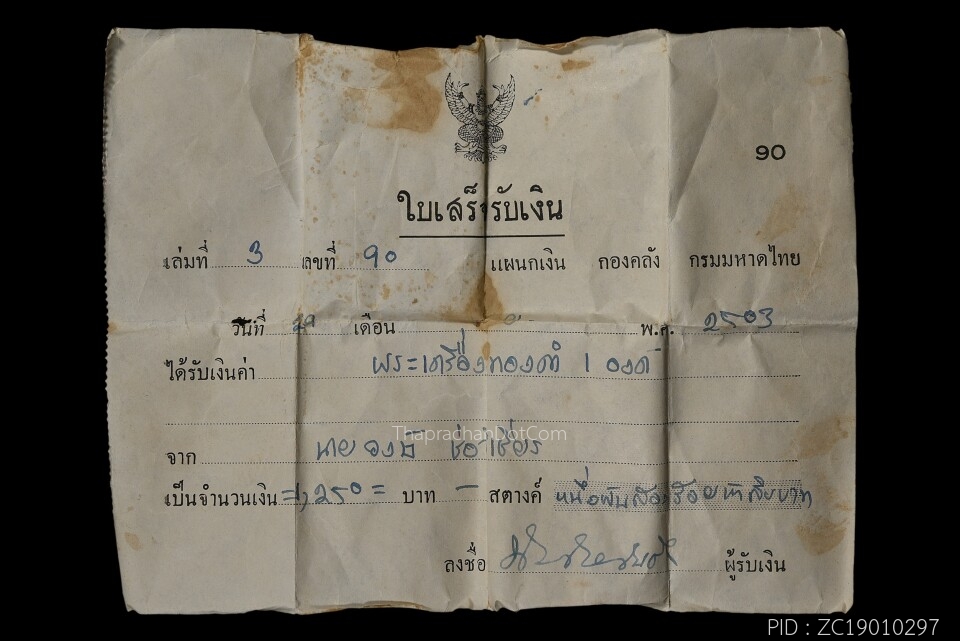 90
ใบเสร็จรับเงิน
เล่มที่ 3 เลขที่ 90 แผนกเงิน กองคลัง กรมมหาดไทย
วันที่ เดือน พ.ศ. 2503
ได้รับเงินค่า พระเครื่องทองคำ 1 องค์
ThaprachanDotCom
จาก นาย
เป็นจำนวนเงิน =1,250= บาท — สตางค์ หนึ่งพันสองร้อยห้าสิบบาท
ลงชื่อ ผู้รับเงิน
PID : ZC19010297